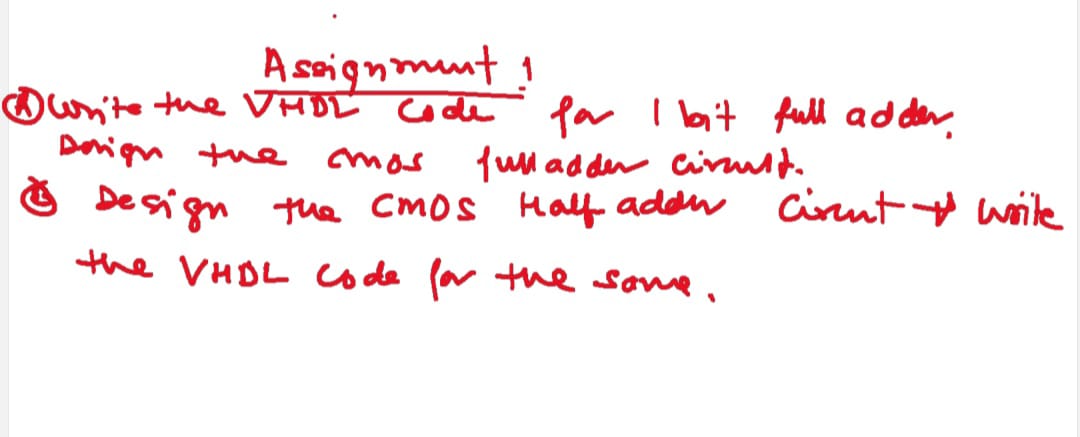 Assignment 1
(A) Write the VHDL code for 1 bit full adder.
Design the cmos full adder circuit.
Design the CMOS Half adder Circut & write
the VHDL code for the same.